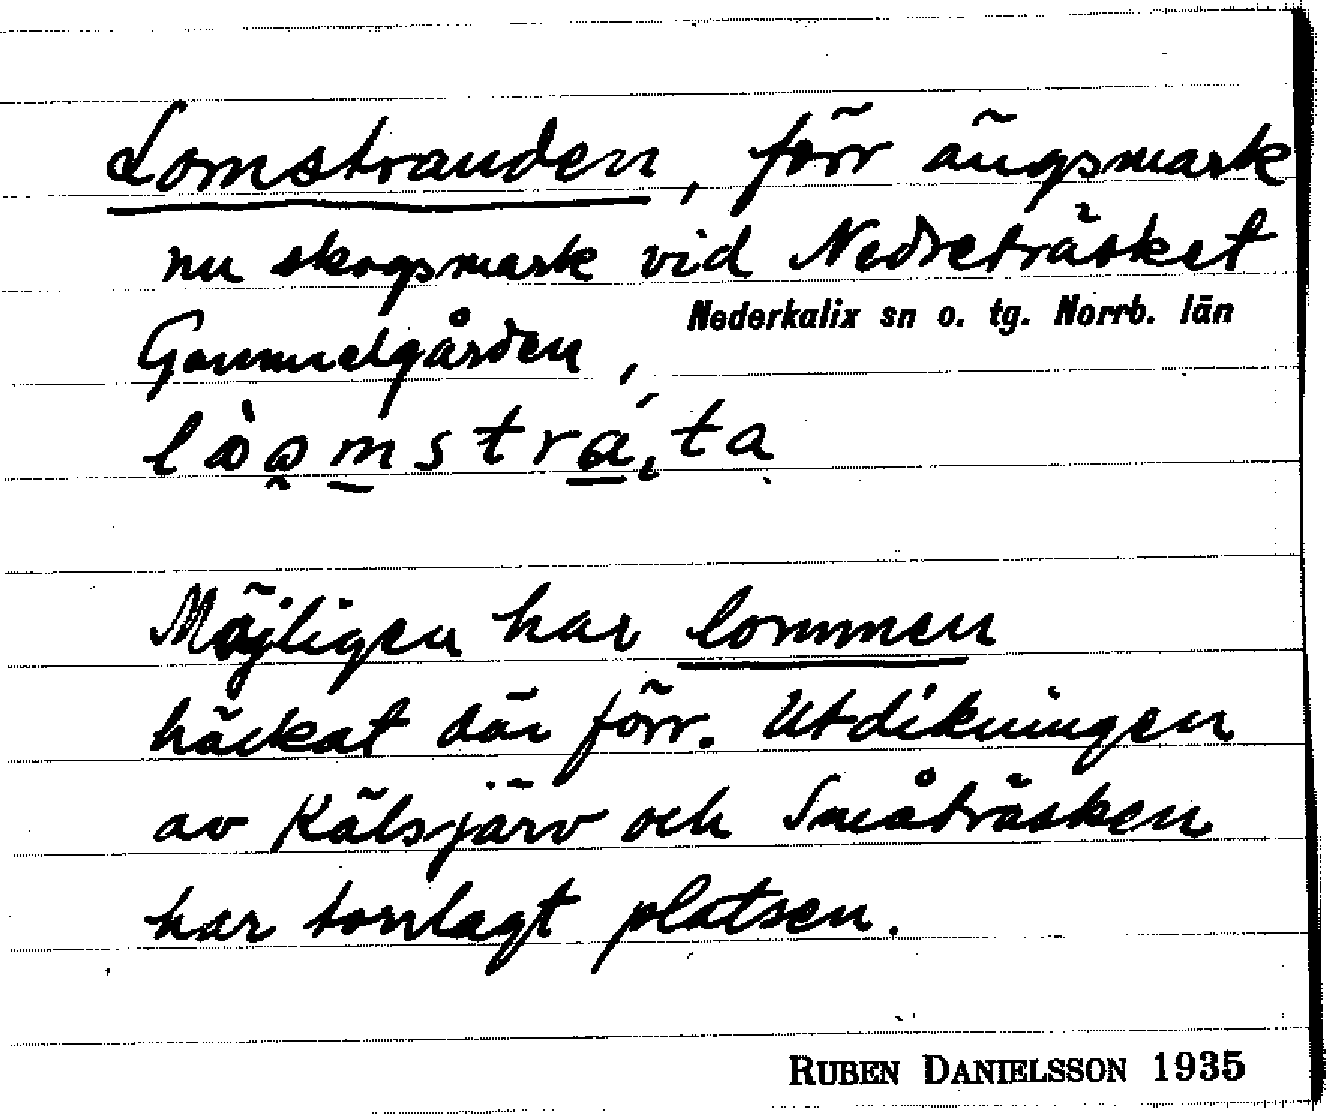 Lomstranden, förr ängsmark
nu skogsmark vid Nedreträsket
Nederkalix sn o. tg. Norrb. län
Gammelgården,
Möjligen har lommen
häckat där förr. Utdikningen
av Kälsjärv och Småträsken
har torrlagt platsen.
RUBEN DANIELSSON 1935